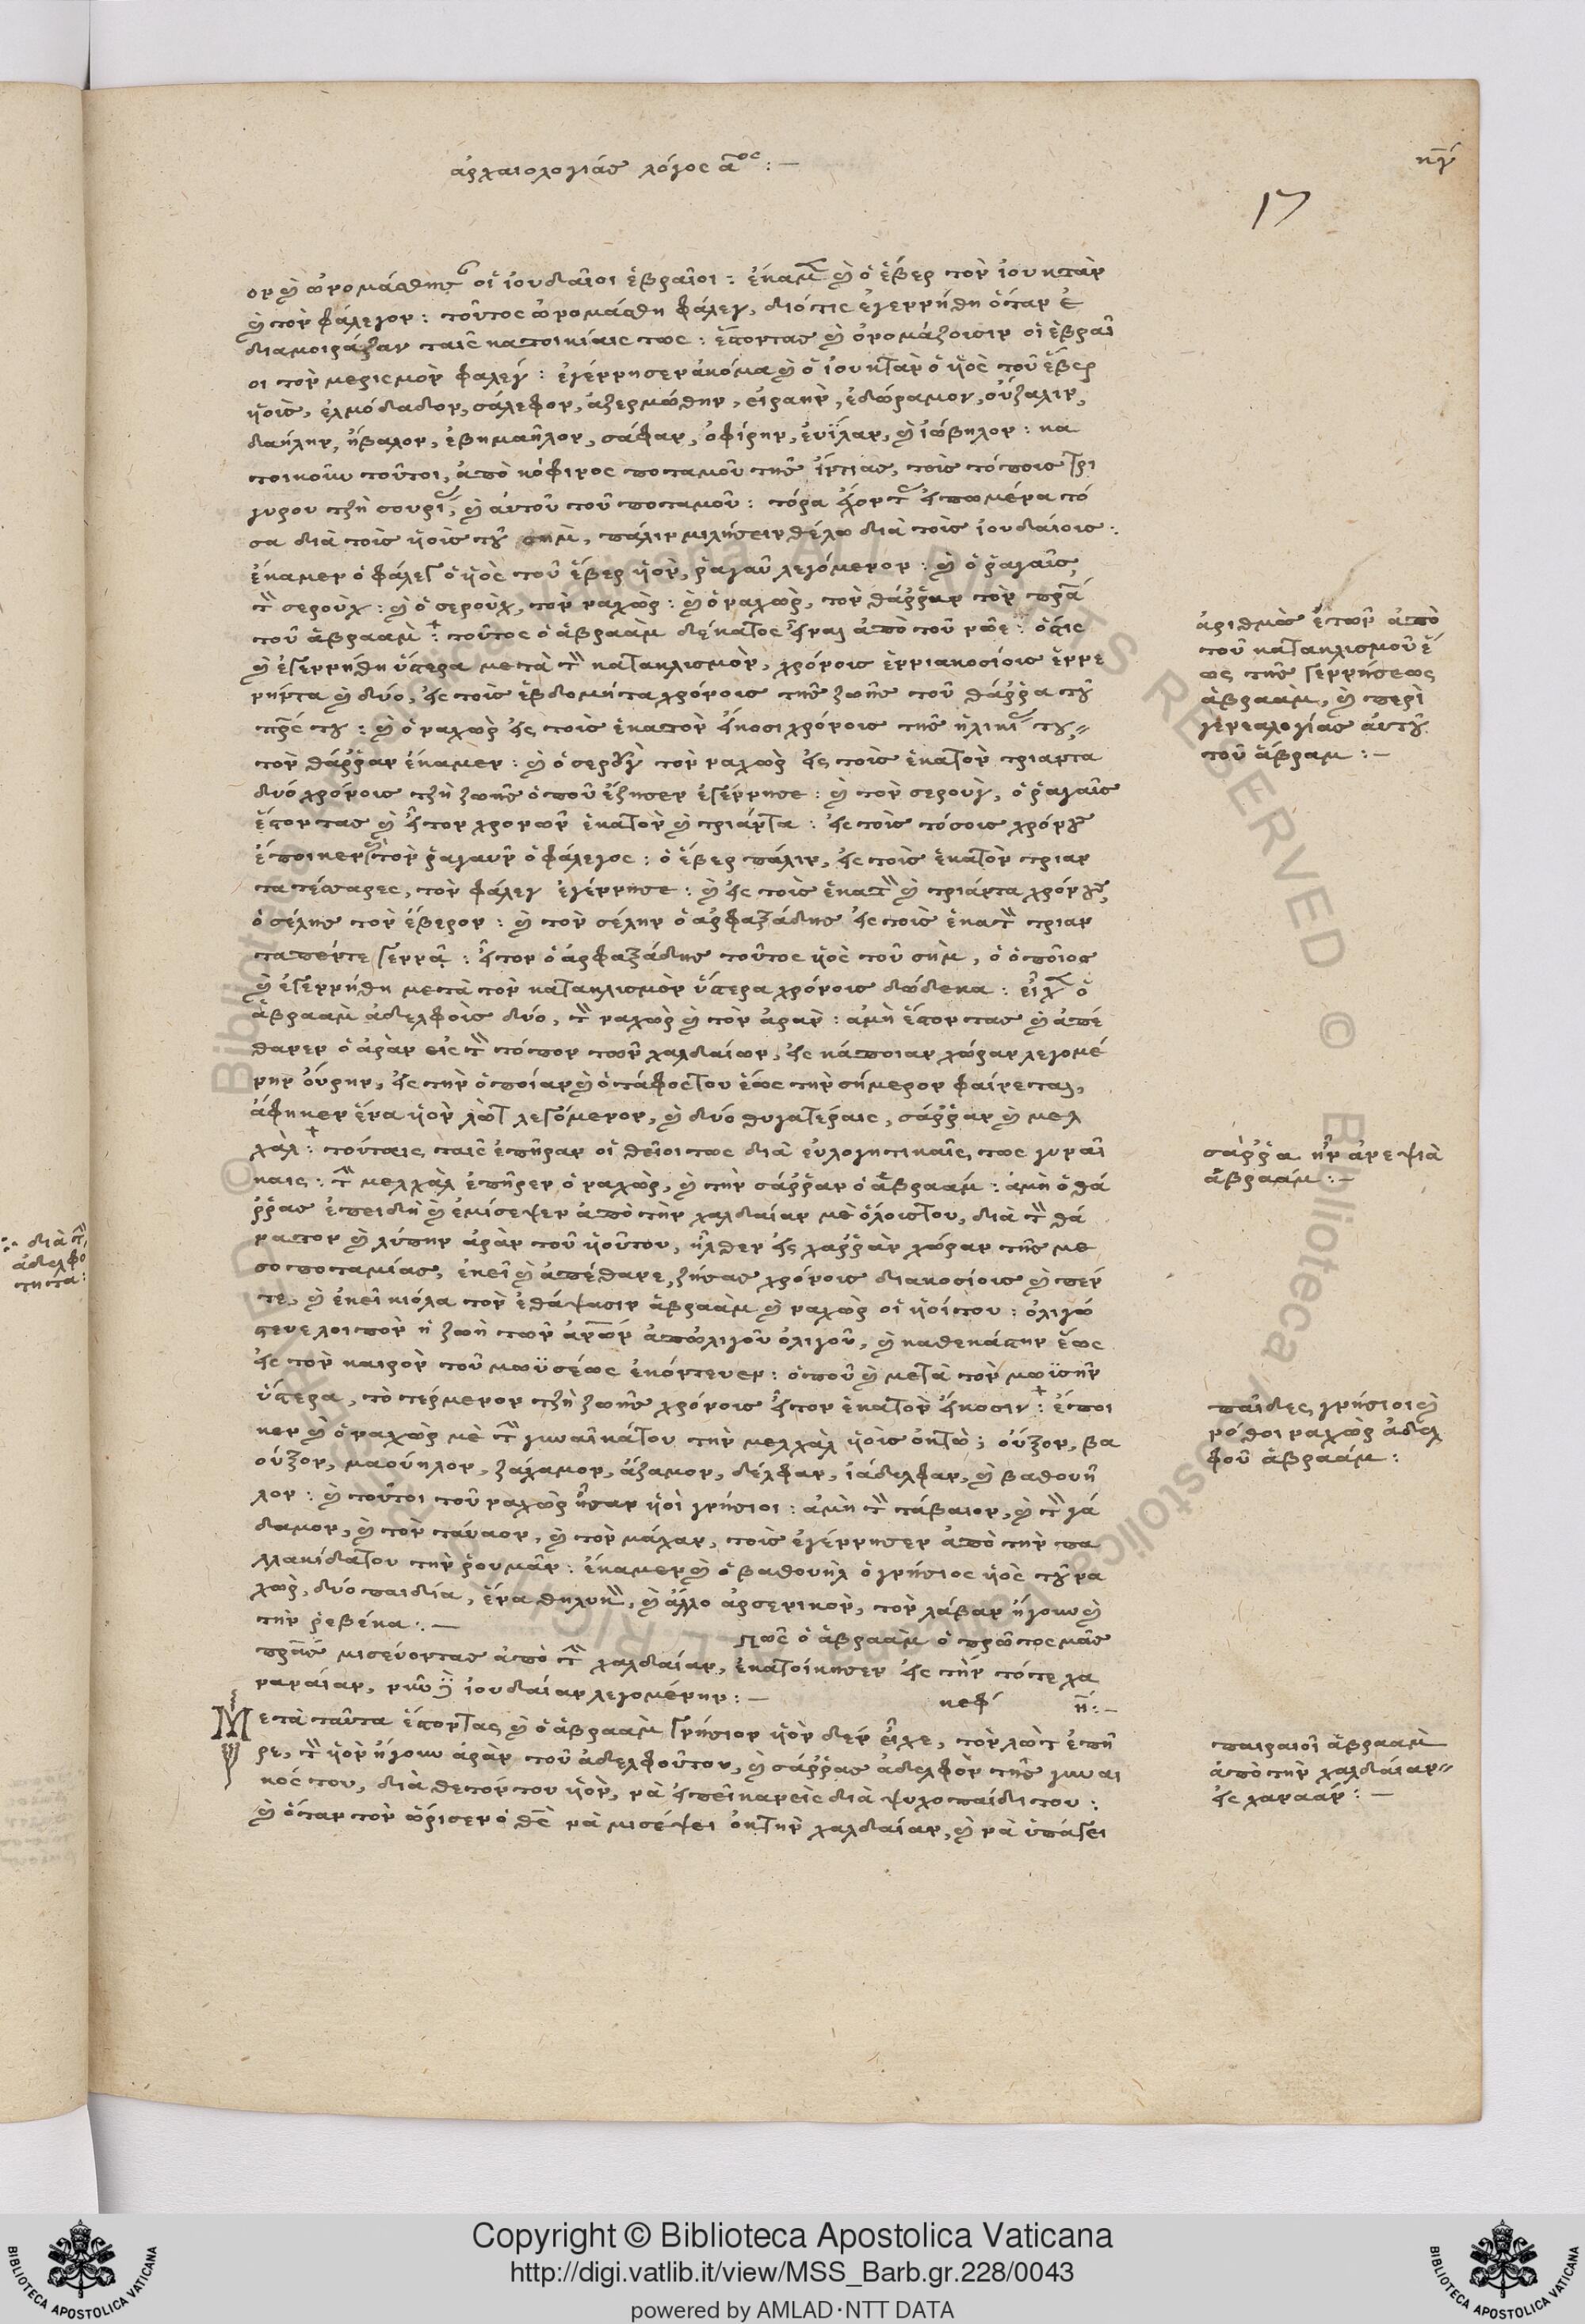 ἀρχαιολογίας λόγος αος :—
κγ
17
ον καὶ ὠνομάσθησ οἱ ἰουδαῖοι ἑβραῖοι : ἔκαμ καὶ ὁ ἕβερ τὸν ἰουκτὰν
καὶ τὸν φάλεγον : τοῦτος ὠνομάσθη φάλεγ, διότις ἐγεννήθη ὅταν ἐ
διαμοιράζαν ταῖς κατοικίαις τως : ἔστοντας καὶ ὀνομάζουσιν οἱ ἑβραῖ
οι τὸν μερισμὸν φαλέγ : ἐγέννησεν ἀκόμα καὶ ὁ ἰουκτὰν ὁ ὑιὸς τοῦ ἕβερ
ὑιοὺς, ἐλμόδαδον, σάλεφον, ἀζερμώθην, εἰραὴν, ἐδώραμον, οὐζαλὶν,
δαήλην, ἤβαλον, ἐβημαῆλον, σάφαν, ὀφίρην, ἐυΐλαν, καὶ ἰώβηλον : κα
τοικοῦν τοῦτοι, ἀπὸ κόφινος ποταμοῦ τῆς ἴντιας, τοὺς τόπους τρι
γυρου τζῆ συρί, καὶ ἀυτοῦ τοῦ ποταμοῦ : τόρα
σα διὰ τοὺς ὑιοὺς τοῦ σὴμ, πάλιν μιλήσειν θέλω διὰ τοὺς ἰουδαίους :
ἔκαμεν ὁ φάλεγ ὁ ὑιὸς τοῦ ἕβερ ὑιὸν, ῥαγαῦ λεγόμενον : καὶ ὁ ῥαγαῦς
τὸν σεροὺχ : καὶ ὁ σεροὺχ, τὸν ναχὼρ : καὶ ὁ ναχὼρ, τὸν θάῤῥαν τὸν πρα
τοῦ ἀβραὰμ : τοῦτος ὁ ἀβραὰμ δέκατος εἶναι ἀπὸ τοῦ νῶε : ὅστις
καὶ ἐγεννήθη ὕστερα μετὰ τὸν κατακλισμὸν, χρόνους ἐννιακοσίους ἐννε
νήντα καὶ δύο, εἰς τοὺς ἑβδομήντα χρόνους τῆς ζωῆς τοῦ θάῤῥα τοῦ
πρς του : καὶ ὁ ναχὼρ εἰς τοὺς ἑκατὸν εἴκοσι χρόνους τῆς ἡλικί του,
τὸν θάῤῥαν ἔκαμεν : καὶ ὁ σερούγ τὸν ναχὼρ εἰς τοὺς ἑκατὸν τριαντα
δυό χρόνους τζῆ ζωῆς ὁποῦ ἔζησεν ἐγέννησε : καὶ τὸν σερούγ, ὁ ῥαγαῦς
ἔστοντας καὶ ἦτον χρονῶν ἑκατὸν καὶ τριάντα : εἰς τοὺς τόσους χρόνους
ἔποικεν τὸν ῥαγαυν ὁ φάλεγος : ὁ ἕβερ πάλιν, εἰς τοὺς ἑκατὸν τριαν
τα τέσσαρες, τὸν φάλεγ ἐγέννησε : καὶ εἰς τοὺς ἑκατὸν καὶ τριάντα χρόνους,
ὁ σέλης τὸν ἕβερον : καὶ τὸν σέλην ὁ ἀρφαξάδης εἰς τοὺς ἑκατὸν τριαν
ταπέντε γεννᾶ : ἦτον ὁ ἀρφαξάδης τοῦτος ὑιὸς τοῦ σὴμ, ὁ ὁποῖος
καὶ ἐγεννήθη μετὰ τὸν κατακλισμὸν ὕστερα χρόνους δώδεκα : εἶχ ὁ
ἀβραὰμ ἀδελφοὺς δύο, τὸν ναχὼρ καὶ τὸν ἀρὰν : ἀμὴ ἔστοντας καὶ ἀπέ
θανεν ὁ ἀρὰν εἰς τὸν τόπον τῶν χαλδαίων, εἰς κάποιαν χώραν λεγομέ
νην οὔρην, εἰς τὴν ὁποίαν καὶ ὁ τάφος του ἕως τὴν σήμερον φαίνεται,
ἄφηκεν ἕνα ὑιὸν λὼτ λεγόμενον, καὶ δύο θυγατέραις, σάῤῥαν καὶ μελ
χάλ : τούταις ταῖς ἐπῆραν οἱ θεῖοι τως διὰ εὐλογητικαῖς τως γυναῖ
καις : τὴν μελχὰλ ἐπῆρεν ὁ ναχὼρ, καὶ τὴν σάῤῥαν ὁ ἀβραάμ : ἀμὴ ὁ θά
ῤῥας ἐπειδὴ καὶ ἐμίσεψεν ἀπὸ τὴν χαλδαίαν μὲ ὅλους του, διὰ τὸν θά
νατον καὶ λύπην ἀρὰν τοῦ ὑιοῦ του, ἦλθεν εἰς χαῤῥὰν χώραν τῆς με
σοποταμίας, ἐκεῖ καὶ ἀπέθανε, ζήσας χρόνους διακοσίους καὶ πέν
τε, καὶ ἐκεῖ κιόλα τὸν ἐθάψασιν ἀβραὰμ καὶ ναχὼρ οἱ ὑιοί του : ὀλιγώ
στευε λοιπὸν ἡ ζωὴ τῶν ἀνῶν ἀπὀλιγοῦ ὀλιγοῦ, καὶ καθεκάστην ἕως
εἰς τὸν καιρὸν τοῦ μωϋσέως ἐκόντευεν : ὁποῦ καὶ μετὰ τὸν μωϋσῆν
ὕστερα, τὸ τέρμενον τζῆ ζωῆς χρόνους ἦτον ἑκατὸν εἴκοσιν : ἔποι
κεν καὶ ὁ ναχὼρ μὲ τὴν γυναῖκά του τὴν μελχὰλ ὑιοὺς ὀκτὼ ; οὔξον, βα
ούξον, μαούηλον, ζάχαμον, ἄζαμον, δέλφαν, ἰάδελφαν, καὶ βαθουῆ
λον : καὶ τοῦτοι τοῦ ναχὼρ ἦσαν ὑιοὶ γνήσιοι : ἀμὴ τὸν τάβαιον, καὶ τὸν γά
δαμον, καὶ τὸν τάναον, καὶ τὸν μάχαν, τοὺς ἐγέννησεν ἀπὸ τὴν πα
λλακίδα του τὴν ῥουμὰν : ἔκαμεν καὶ ὁ βαθουὴλ ὁ γνήσιος ὑιὸς τοῦ να
χὼρ, δυό παιδία, ἕνα θηλυκὸν, καὶ ἄλλο ἀρσενικὸν, τὸν λάβαν ἤγουν καὶ
τὴν ῥεβέκα :—
Πῶς ὁ ἀβραὰμ ὁ πρῶτος μᾶς
πρας μισεύοντας ἀπὸ τὴν χαλδαίαν, ἐκατοίκησεν εἰς τὴν τότε χα
ναναίαν, νῦν ἰουδαίαν λεγομένην :—
κεφ η :—
Μετὰ ταῦτα ἔστοντας καὶ ὁ ἀβραὰμ γνήσιον ὑιὸν δὲν εἶχε, τὸν λὼτ ἐπῆ
ρε, τὸν ὑιὸν ἤγουν ἀρὰν τοῦ ἀδελφοῦ του, καὶ σάῤῥας ἀδελφὸν τῆς γυναι
κός του, διὰ θετόν του ὑιὸν, νὰ εἰπεῖ κανεὶς διὰ ψυχοπαίδι του :
καὶ ὅταν τὸν ὥρισεν ὁ θς νὰ μισέψει ὀκ τὴν χαλδαίαν, καὶ νὰ ὑπάγει
ἀριθμὸς ἐτῶν ἀπὸ
τοῦ κατακλισμοῦ ἕ
ως τῆς γεννήσεως
ἀβραὰμ, καὶ περὶ
γενεαλογίας αὐτοῦ
τοῦ ἀβραμ :—
σάῤῥα ἦν ἀνεψιὰ
ἀβραάμ :—
παῖδες γνήσιοι καὶ
νόθοι ναχὼρ ἀδελ
φοῦ ἀβραάμ :
ἀβραὰμ
ἀπὸ τὴν χαλδαίαν
εἰς χαναάν :—
διὰ τὴν
ἀδελφό
τητα :
Copyright © Biblioteca Apostolica Vaticana
http://digi.vatlib.it/view/MSS_Barb.gr.228/0043
powered by AMLAD·NTT DATA
BIBLIOTECA APOSTOLICA VATICANA
BIBLIOTECA APOSTOLICA VATICANA